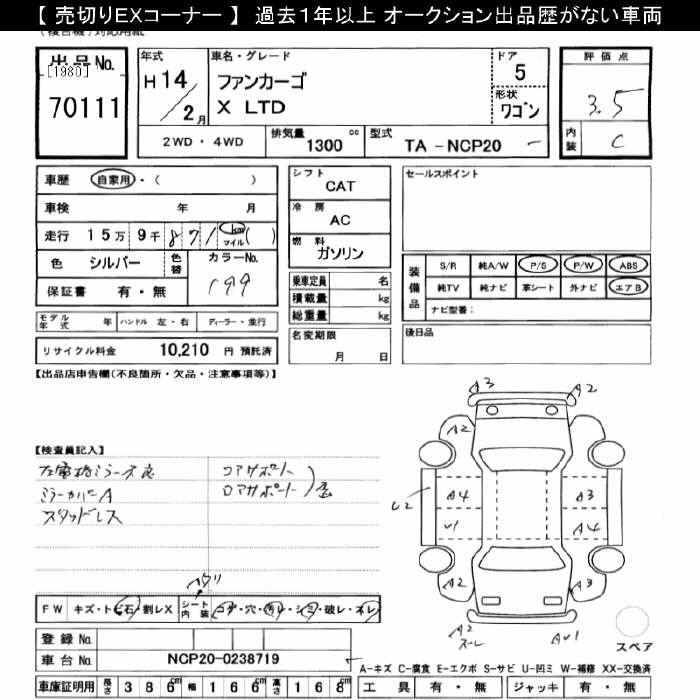 【 売切りEXコーナー 】 過去1年以上 オークション出品歴がない車両
出品No.
[1980]
70111
年式
H 14 / 2 月
車名・グレード
ファンカーゴ
X LTD
ドア
5
形状
ワゴン
2WD・4WD
排気量 1300 cc
型式 TA - NCP20 -
評価点
3.5
内装 C
車歴 自家用・( )
車検 年 月
走行 15万 9千 871 km マイル ( )
色 シルバー 色替 カラーNo. 199
保証書 有・無
モデル年式 年 ハンドル 左・右 ディーラー・並行
リサイクル料金 10,210 円 預託済
シフト
CAT
冷房
AC
燃料
ガソリン
乗車定員 名
積載量 kg
総重量 kg
名変期限
月 日
セールスポイント
装備品
S/R 純A/W P/S P/W ABS
純TV 純ナビ 革シート 外ナビ エアB
ナビ型番：
後日品
【出品店申告欄(不良箇所・欠品・注意事項等)】
【検査員記入】
左電格ミラー不良
ミラーカバーA
スタッドレス
コアサポート
ロアサポート
A3
A2
A2
A4
A3
U2
U1
A4
A2
A3
A2
AU1
スペア
FW キズ・トビ石・割レX シート内装 コゲ・穴・汚リ・シミ・破レ・ネレ
登録No.
車台No. NCP20-0238719
車庫証明用 長さ 386 幅 166 cm 高さ 168 cm
A-キズ C-腐食 E-エクボ S-サビ U-凹ミ W-補修 XX-交換済
工具 有・無 ジャッキ 有・無